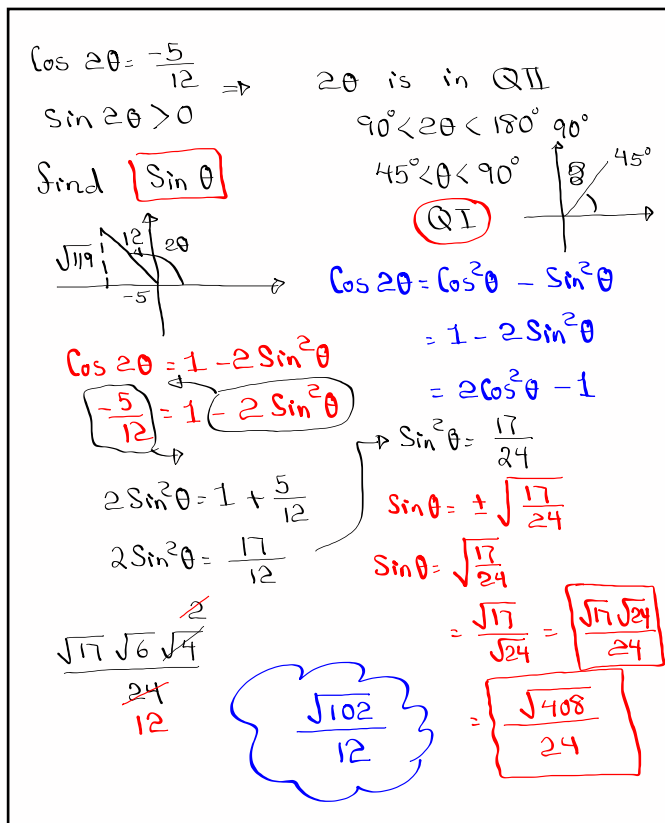 Cos 2θ = -5/12 ⇒ 2θ is in QII
Sin 2θ > 0
90° < 2θ < 180°
find Sin θ
45° < θ < 90°
QI
90°
45°
θ
√119
12
2θ
-5
Cos 2θ = Cos²θ - Sin²θ
= 1 - 2 Sin²θ
= 2Cos²θ - 1
Cos 2θ = 1 - 2 Sin²θ
-5/12 = 1 - 2 Sin²θ
2 Sin²θ = 1 + 5/12
2 Sin²θ = 17/12
Sin²θ = 17/24
Sin θ = ± √(17/24)
Sin θ = √(17/24)
= √17/√24 = √17 √24/24
= √408/24
√17 √6 √4/24
2
12
√102/12